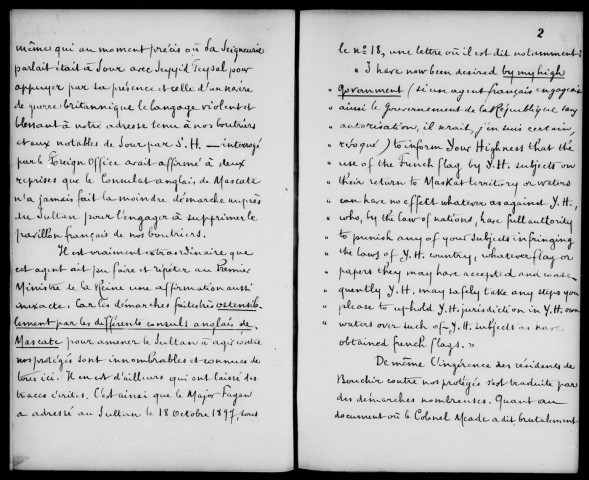 même qui au moment précis où Sa Seigneurie
parlait était à Sour avec Seyyid Feysal pour
appuyer par sa présence et celle d'un navire
de guerre britannique le langage violent et
blessant à notre adresse tenu à nos boutriers
et aux notables de Sour par S. H. — interrogé
par le Foreign Office avait affirmé à deux
reprises que le Consulat anglais de Mascate
n'a jamais fait la moindre démarche auprès
du Sultan pour l'engager à supprimer le
pavillon français de nos boutriers.
Il est vraiment extraordinaire que
cet agent ait pu faire et répéter au Premier
Ministre de la Reine une affirmation aussi
inexacte. Car les démarches faites très ostensi-
blement par les différents consuls anglais de
Mascate pour amener le Sultan à agir contre
nos protégés sont innombrables et connues de
tous ici. Il en est d'ailleurs qui ont laissé des
traces écrites. C'est ainsi que le Major Fagan
a adressé au Sultan le 18 Octobre 1897, sous
2
le nº 18, une lettre où il est dit notamment :
" I have now been desired by my high
" Government (si un agent français engageait
" ainsi le Gouvernement de la République sans
" autorisation, il serait, j'en suis certain,
" révoqué) to inform Your Highness that the
" use of the French flag by Y.H. subjects on
" their return to Maskat territory or waters
" can have no effect whatever as against Y.H.,
" who, by the law of nations, have full authority
" to punish any of your subjects infringing
" the laws of Y.H. country, whatever flag or
" papers they may have accepted and conse-
" quently Y.H. may safely take any steps you
" please to uphold Y.H. jurisdiction in Y.H. own
" waters over such of Y.H. subjects as have
obtained french flags. "
De même l'ingérence des résidents de
Bouchir contre nos protégés s'est traduite par
des démarches nombreuses. Quant au
document où le Colonel Meade a dit brutalement